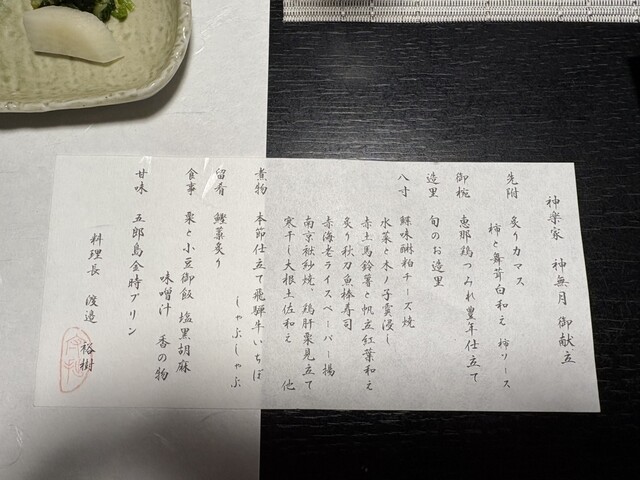 神楽家　神無月　御献立
先附　炙りカマス
柿と舞茸白和え　柿ソース
御椀　恵那鶏つみれ豊年仕立て
造里　旬のお造里
八寸　鰤味醂粕チーズ焼
水菜と木ノ子霙浸し
赤土馬鈴薯と帆立紅葉和え
炙り秋刀魚棒寿司
赤海老ライスペーパー揚
南京袱紗焼、鶏肝栗見立て
寒干し大根土佐和え　他
煮物　本節仕立て飛騨牛いちぼ
しゃぶしゃぶ
留肴　鰹藁炙り
食事　栗と小豆御飯　塩黒胡麻
味噌汁　香の物
甘味　五郎島金時プリン
料理長　渡邉　裕樹